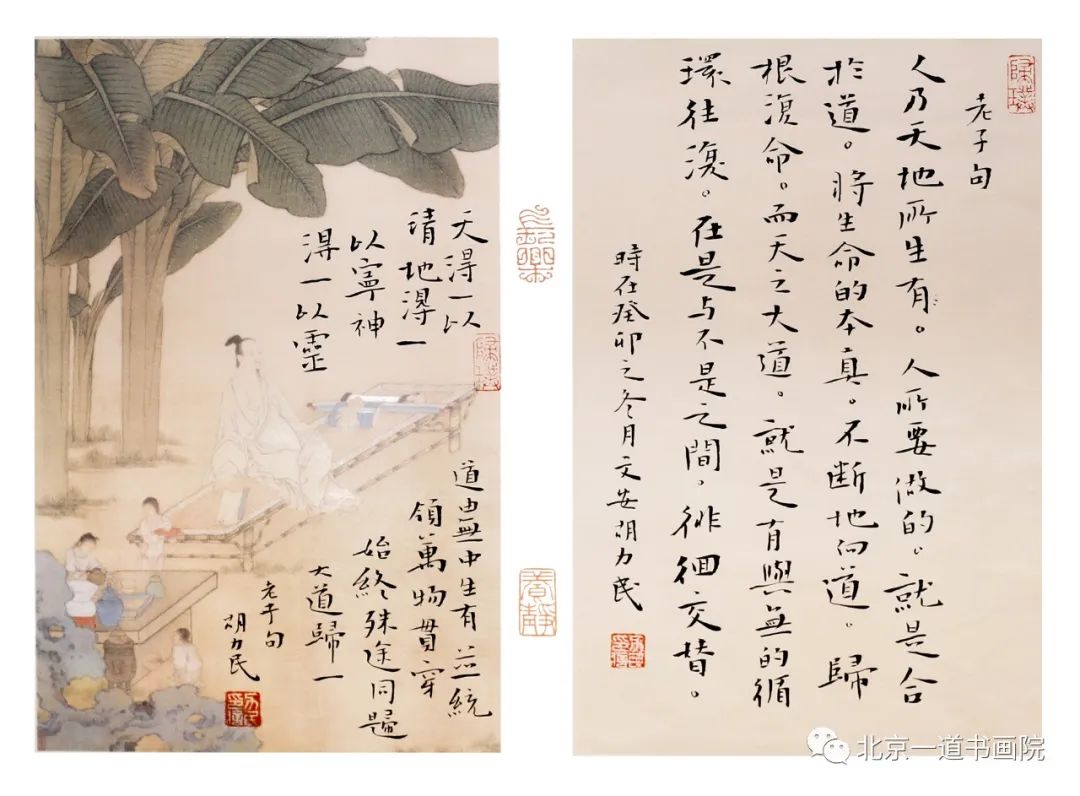 天得一以
清地得一
以寧神
得一以靈
道由無中生有並統
領萬物貫穿
始終殊途同歸
大道歸一
老子句
胡力民
長樂
養靜
老子句
人乃天地所生有。人所要做的。就是合
於道。將生命的本真。不断地向道。歸
根復命。而天之大道。就是有與無的循
環往復。在是与不是之間。徘徊交替。
時在癸卯之冬月文安胡力民
北京一道书画院